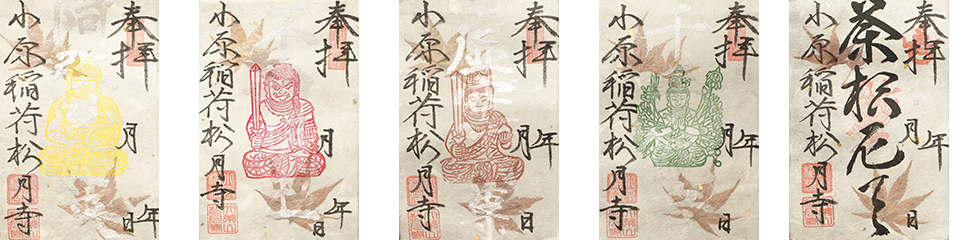 奉拝
年 月 日
小原稲荷松月寺
奉拝
年 月 日
小原稲荷松月寺
奉拝
年 月 日
小原稲荷松月寺
奉拝
年 月 日
小原稲荷松月寺
奉拝
年 月 日
荼枳尼天
小原稲荷松月寺